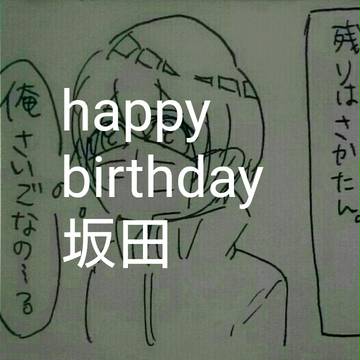 残りはさかたん。
happy
birthday
坂田
俺さいごなの〜る